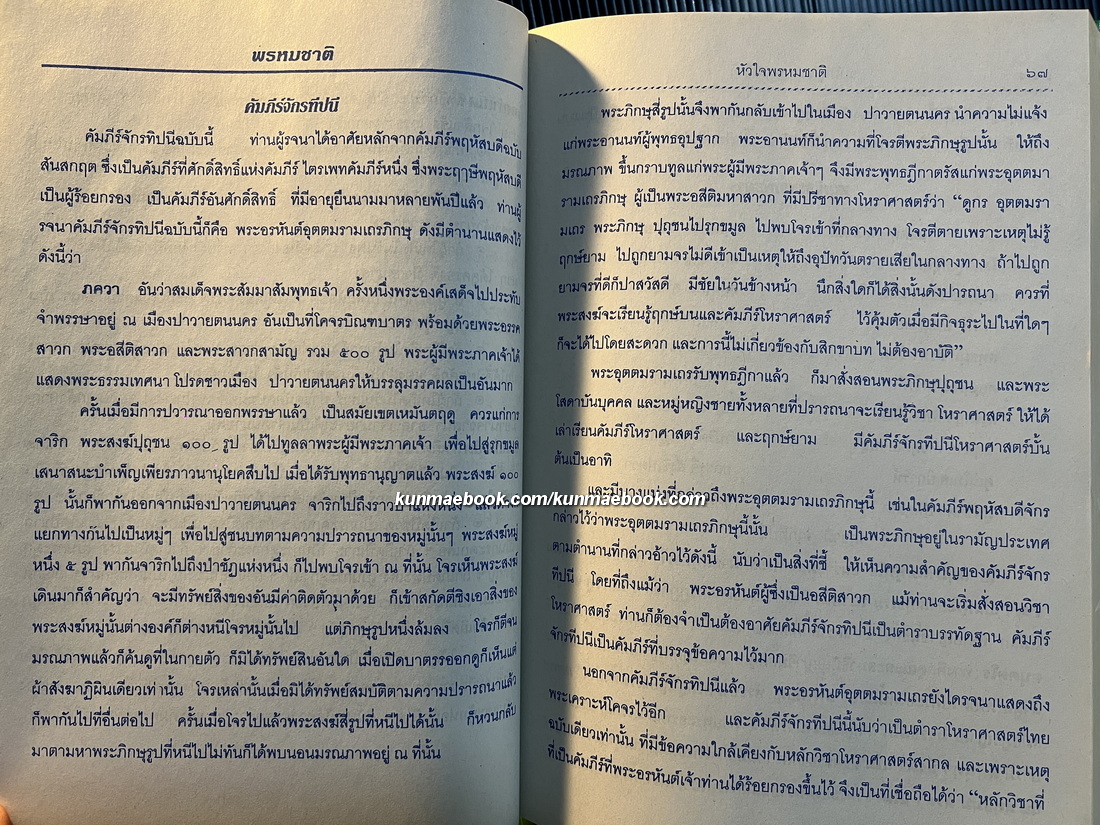 พรหมชาติ
คัมภีร์จักรทีปนี
คัมภีร์จักรทิปนีฉบับนี้ ท่านผู้รจนาได้อาศัยหลักจากคัมภีร์พฤหัสบดีฉบับ
สันสกฤต ซึ่งเป็นคัมภีร์ที่ศักดิ์สิทธิ์แห่งคัมภีร์ ไตรเพทคัมภีร์หนึ่ง ซึ่งพระฤๅษีพฤหัสบดี
เป็นผู้ร้อยกรอง เป็นคัมภีร์อันศักดิ์สิทธิ์ ที่มีอายุยืนนามมาหลายพันปีแล้ว ท่านผู้
รจนาคัมภีร์จักรทิปนีฉบับนี้ก็คือ พระอรหันต์อุตตมรามเถรภิกษุ ดังมีตำนานแสดงไว้
ดังนี้ว่า
ภควา อันว่าสมเด็จพระสัมมาสัมพุทธเจ้า ครั้งหนึ่งพระองค์เสด็จไปประทับ
จำพรรษาอยู่ ณ เมืองปาวายตนนคร อันเป็นที่โคจรบิณฑบาตร พร้อมด้วยพระอรรค
สาวก พระอสีติสาวก และพระสาวกสามัญ รวม ๕๐๐ รูป พระผู้มีพระภาคเจ้าได้
แสดงพระธรรมเทศนา โปรดชาวเมือง ปาวายตนนครให้บรรลุมรรคผลเป็นอันมาก
ครั้นเมื่อมีการปวารณาออกพรรษาแล้ว เป็นสมัยเขตเหมันตฤดู ควรแก่การ
จาริก พระสงฆ์ปุถุชน ๑๐๐ รูป ได้ไปทูลลาพระผู้มีพระภาคเจ้า เพื่อไปสู่รุกขมูล
เสนาสนะบำเพ็ญเพียรภาวนานุโยคสืบไป เมื่อได้รับพุทธานุญาตแล้ว พระสงฆ์ ๑๐๐
รูป นั้นก็พากันออกจากเมืองปาวายตนนคร จาริกไปถึงราวป่าแห่งหนึ่ง
kunmaebook.com/kunmaebook.com
แยกทางกันไปเป็นหมู่ๆ เพื่อไปสู่ชนบทตามความปรารถนาของหมู่นั้นๆ พระสงฆ์หมู่
หนึ่ง ๕ รูป พากันจาริกไปถึงป่าชัฏแห่งหนึ่ง ก็ไปพบโจรเข้า ณ ที่นั้น โจรเห็นพระสงฆ์
เดินมาก็สำคัญว่า จะมีทรัพย์สิ่งของอันมีค่าติดตัวมาด้วย ก็เข้าสกัดตีชิงเอาสิ่งของ
พระสงฆ์หมู่นั้นต่างองค์ก็ต่างหนีโจรหมู่นั้นไป แต่ภิกษุรูปหนึ่งล้มลง โจรก็ตีจน
มรณภาพแล้วก็ค้นดูที่ในกายตัว ก็มิได้ทรัพย์สินอันใด เมื่อเปิดบาตรออกดูก็เห็นแต่
ผ้าสังฆาฏิผืนเดียวเท่านั้น โจรเหล่านั้นเมื่อมิได้ทรัพย์สมบัติตามความปรารถนาแล้ว
ก็พากันไปที่อื่นต่อไป ครั้นเมื่อโจรไปแล้วพระสงฆ์สี่รูปที่หนีไปได้นั้น ก็หวนกลับ
มาตามหาพระภิกษุรูปที่หนีไปไม่ทันก็ได้พบนอนมรณภาพอยู่ ณ ที่นั้น
หัวใจพรหมชาติ ๖๗
พระภิกษุสี่รูปนั้นจึงพากันกลับเข้าไปในเมือง ปาวายตนนคร นำความไม่แจ้ง
แก่พระอานนท์ผู้พุทธอุปฐาก พระอานนท์ก็นำความที่โจรตีพระภิกษุรูปนั้น ให้ถึง
มรณภาพ ขึ้นกราบทูลแก่พระผู้มีพระภาคเจ้าๆ จึงมีพระพุทธฎีกาตรัสแก่พระอุตตมา
รามเถรภิกษุ ผู้เป็นพระอสีติมหาสาวก ที่มีปรีชาทางโหราศาสตร์ว่า “ดูกร อุตตมรา
มเถร พระภิกษุ ปุถุชนไปรุกขมูล ไปพบโจรเข้าที่กลางทาง โจรตีตายเพราะเหตุไม่รู้
ฤกษ์ยาม ไปถูกยามจรไม่ดีเข้าเป็นเหตุให้ถึงอุปัทวันตรายเสียในกลางทาง ถ้าไปถูก
ยามจรที่ดีก็ปาสวัสดี มีชัยในวันข้างหน้า นึกสิ่งใดก็ได้สิ่งนั้นดังปารถนา ควรที่
พระสงฆ์จะเรียนรู้ฤกษ์บนและคัมภีร์โหราศาสตร์ ไว้คุ้มตัวเมื่อมีกิจธุระไปในที่ใดๆ
ก็จะได้ไปโดยสะดวก และการนี้ไม่เกี่ยวข้องกับสิกขาบท ไม่ต้องอาบัติ”
พระอุตตมรามเถรรับพุทธฎีกาแล้ว ก็มาสั่งสอนพระภิกษุปุถุชน และพระ
โสดาบันบุคคล และหมู่หญิงชายทั้งหลายที่ปรารถนาจะเรียนรู้วิชา โหราศาสตร์ ให้ได้
เล่าเรียนคัมภีร์โหราศาสตร์ และฤกษ์ยาม มีคัมภีร์จักรทีปนีโหราศาสตร์บั้น
ต้นเป็นอาทิ
และมีบางแห่งที่กล่าวถึงพระอุตตมรามเถรภิกษุนี้ เช่นในคัมภีร์พฤหัสบดีจักร
กล่าวไว้ว่าพระอุตตมรามเถรภิกษุนี้นั้น เป็นพระภิกษุอยู่ในรามัญประเทศ
ตามตำนานที่กล่าวอ้าวไว้ดังนี้ นับว่าเป็นสิ่งที่ชี้ ให้เห็นความสำคัญของคัมภีร์จักร
ทีปนี โดยที่ถึงแม้ว่า พระอรหันต์ผู้ซึ่งเป็นอสีติสาวก แม้ท่านจะเริ่มสั่งสอนวิชา
โหราศาสตร์ ท่านก็ต้องจำเป็นต้องอาศัยคัมภีร์จักรทีปนีเป็นตำราบรรทัดฐาน คัมภีร์
จักรทีปนีเป็นคัมภีร์ที่บรรจุข้อความไว้มาก
นอกจากคัมภีร์จักรทีปนีแล้ว พระอรหันต์อุตตมรามเถรยังไดรจนาแสดงถึง
พระเคราะห์โคจรไว้อีก และคัมภีร์จักรทีปนีนี้นับว่าเป็นตำราโหราศาสตร์ไทย
ฉบับเดียวเท่านั้น ที่มีข้อความใกล้เคียงกับหลักวิชาโหราศาสตร์สากล และเพราะเหตุ
ที่เป็นคัมภีร์ที่พระอรหันต์เจ้าท่านได้ร้อยกรองขึ้นไว้ จึงเป็นที่เชื่อถือได้ว่า “หลักวิชาที่